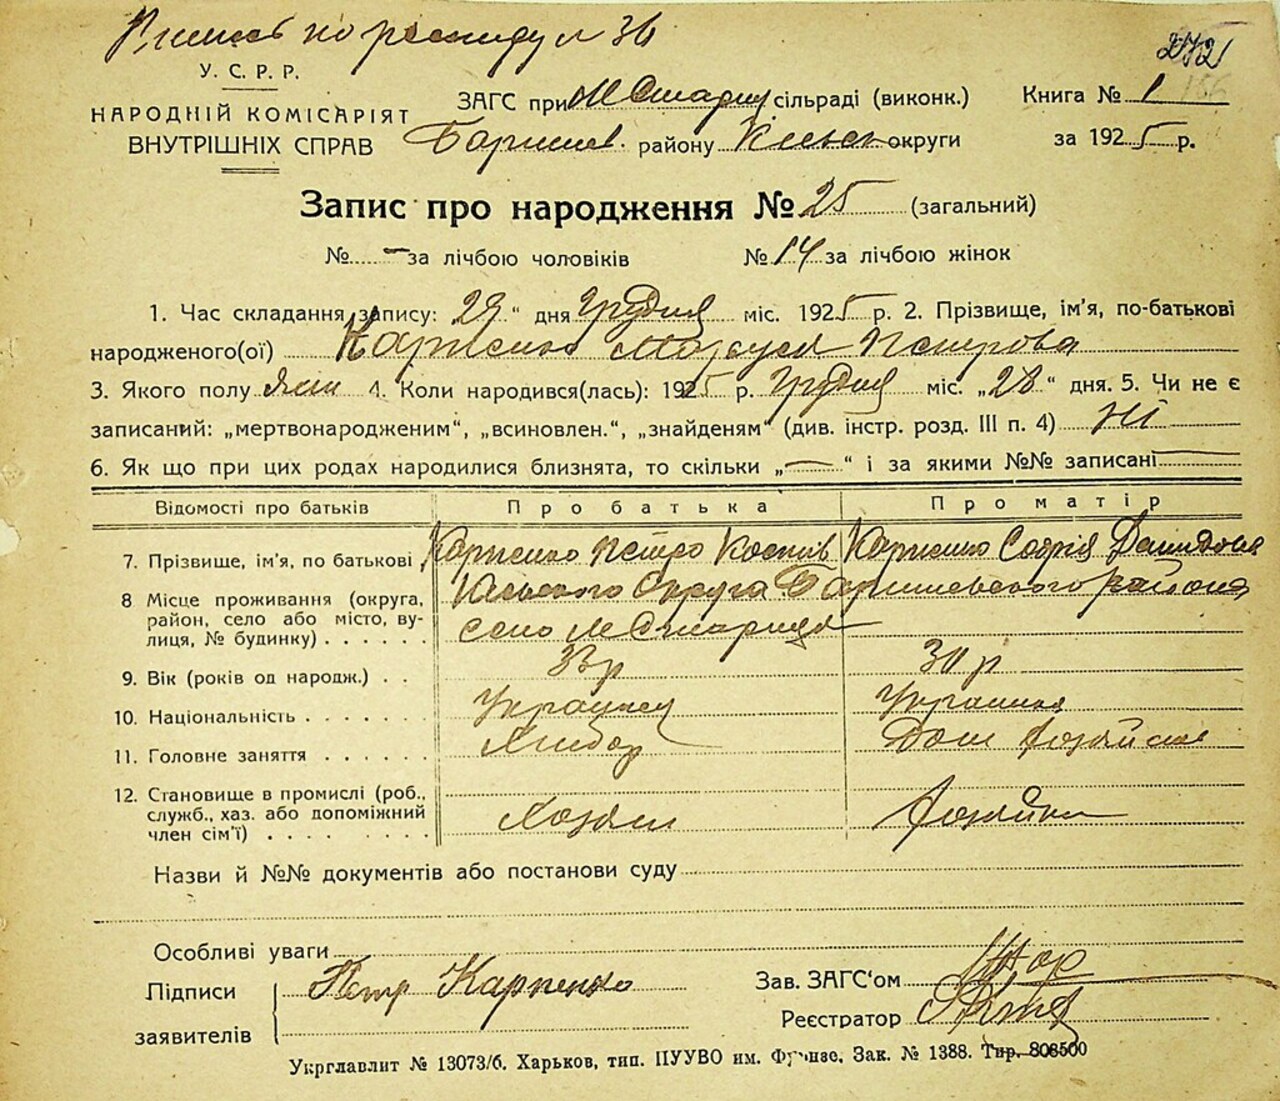 по 36
272
У. С. Р. Р.
НАРОДНІЙ КОМІСАРІЯТ
ВНУТРІШНІХ СПРАВ
ЗАГС при М Стариц сільраді (виконк.)
Книга № 1 166
Баришев. району Київськ округи
за 1925 р.
Запис про народження № 25 (загальний)
№ — за лічбою чоловіків № 14 за лічбою жінок
1. Час складання запису: 29 " дня Грудня міс. 1925 р. 2. Прізвище, ім'я, по-батькові
народженого(ої) Карпенко Петрова
3. Якого полу жін 4. Коли народився(лась): 1925 р. Грудня міс. „28" дня. 5. Чи не є
записаний: „мертвонародженим", „всиновлен.", „знайденям" (див. інстр. розд. III п. 4) Ні
6. Як що при цих родах народилися близнята, то скільки „—" і за якими №№ записані —
Відомості про батьків Про батька Про матір
7. Прізвище, ім'я, по батькові Карпенко Петро Костів Карпенко Софія Давидова
8 Місце проживання (округа, район, село або місто, вулиця, № будинку) Київського Округа Баришевского района
село М Старица
9. Вік (років од народж.) 33 р 30 р
10. Національність Украінец Украинка
11. Головне заняття Хлібор Дом хозяйство
12. Становище в промислі (роб., служб., хаз. або допоміжний член сім'ї) Хозяин Хозяйка
Назви й №№ документів або постанови суду
Особливі уваги
Підписи заявителів Петр Карпенко
Зав. ЗАГС'ом
Реєстратор
Укрглавлит № 13073/б. Харьков, тип. ПУУВО им. Фрунзе, Зак. № 1388. Тир. 808500